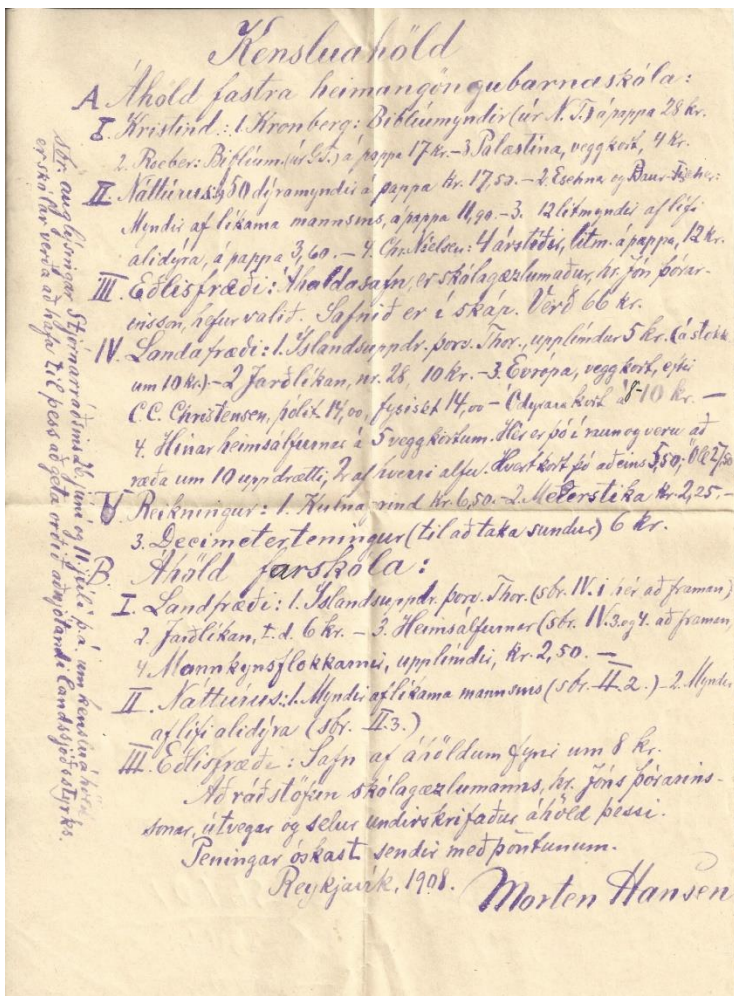 Kensluáhöld
A Áhöld fastra heimangöngubarnaskóla:
I. Kristind.: 1. Kronberg: Biblíumyndir (úr N.T.) á pappa 28 kr.
2. Roeber: Biblíum. (úr G.T.) á pappa 17 kr. – 3 Palæstina, veggkort, 4 kr.
II Náttúrus.: 50 dýramyndir á pappa kr. 17,50. – 2. Eschner og
Myndir af líkama mannsins, á pappa 11,90 – 3. 12 litmyndir af lífi
alidýra, á pappa 3,60. – 4. Chr. Nielsen: 4 árstíðir, litm. á pappa, 12 kr.
III Eðlisfræði: Áhaldasafn, er skólagæzlumaður, hr. Jón Þórar-
insson, hefur valið. Safnið er í skáp. Verð 66 kr.
IV. Landafræði: 1. Íslandsuppdr. Þorv. Thor., upplímdur 5 kr. (á stokk
um 10 kr.) – 2 Jarðlíkan, nr. 28, 10 kr. – 3. Evrópa, veggkort, eftir
C.C. Christensen, pólit 14,00, fysiskt 14,00 – Ódýrara kort á 8-10 kr. –
4. Hinar heimsálfurnar á 5 veggkortum. Hér er þó í raun og veru að
ræða um 10 uppdrætti, 2 af hverri álfu. Hvert kort fó aðeins 5,50; Öll 27,50
V Reikningur: 1. Kúlnagrind kr. 6,50 – 2. Meterstika kr. 2,25. –
3. Decimeterteningur (til að taka sundur) 6 kr.
B. Áhöld farskóla:
I. Landfræði: 1. Íslandsuppdr. Þorv. Thor. (sbr. IV. 1 hér að framan)
2. Jarðlíkan, t.d. 6 kr. – 3. Heimsálfurnar (sbr. IV 3. og 4. að framan)
4 Mannkynsflokkarnir, upplímdir, kr. 2,50. –
II. Náttúrus.: 1. Myndir af líkama mannsins (sbr. II.2.) – 2. Myndir
af lífi alidýra (sbr. II.3.)
III. Eðlisfræði: Safn af áhöldum fyrir um 8 kr.
Að ráðstöfun skólagæzlumanns, hr. Jóns Þórarins-
sonar, útvegar og selur undirskrifaður áhöld þessi.
Peningar óskast sendir með pöntunum.
Reykjavík, 1908.
Morten Hansen
sbr. auglýsingar Stjórnarráðsins 26. júní og 11. júlí þ.á. um kensluáhöld
er skólar verða að hafa til þess að geta orðið aðnjótandi Landssjóðsstyrks.